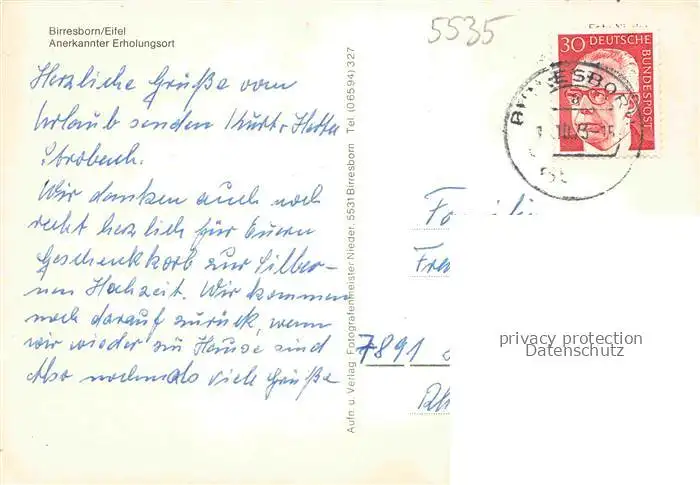 Birresborn/Eifel
Anerkannter Erholungsort
5535
30 DEUTSCHE
BUNDESPOST
Herzliche Grüße vom
Urlaub senden Kurt + Herta
Strobach.
Wir danken auch noch
recht herzlich für Euern
Geschenkkorb zur Silber-
nen Hochzeit. Wir kommen
noch darauf zurück, wenn
wir wieder zu Hause sind
Also nochmals viele Grüße
Aufn. u. Verlag Fotografenmeister Nieder, 5531 Birresborn Tel. (06594) 327
7891
privacy protection
Datenschutz